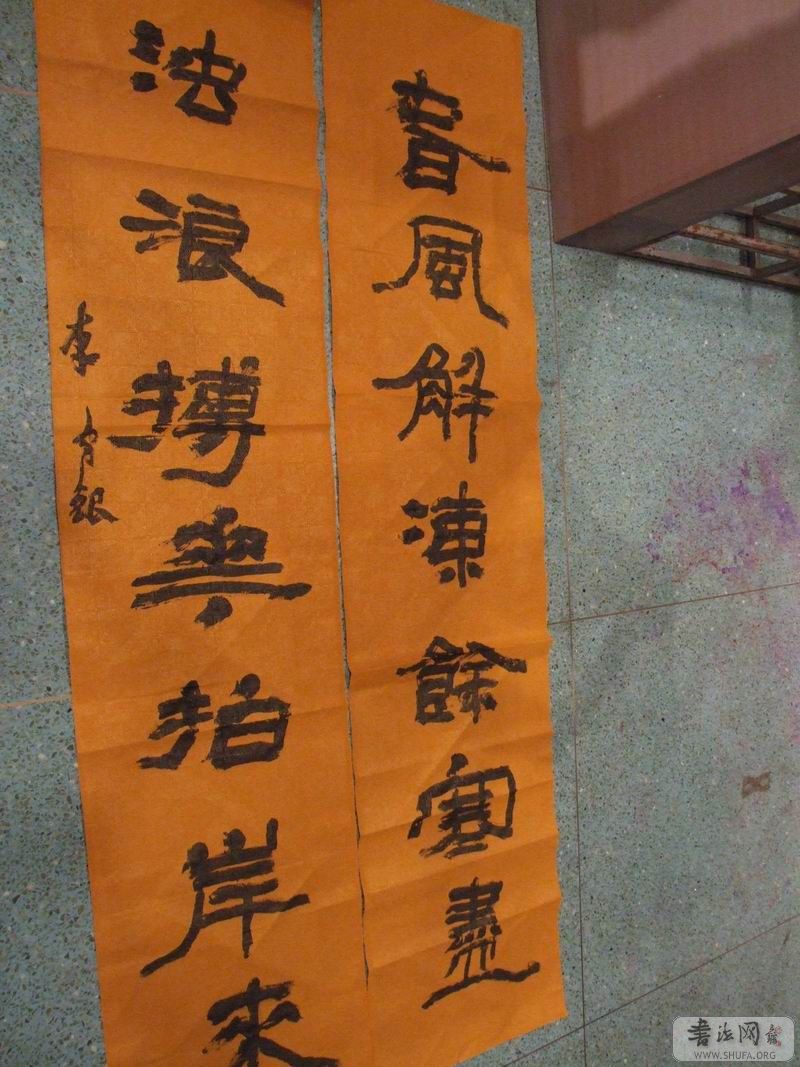 春風解凍餘寒盡
浊浪搏拍岸來
李銀
书法网
WWW.SHUFA.ORG